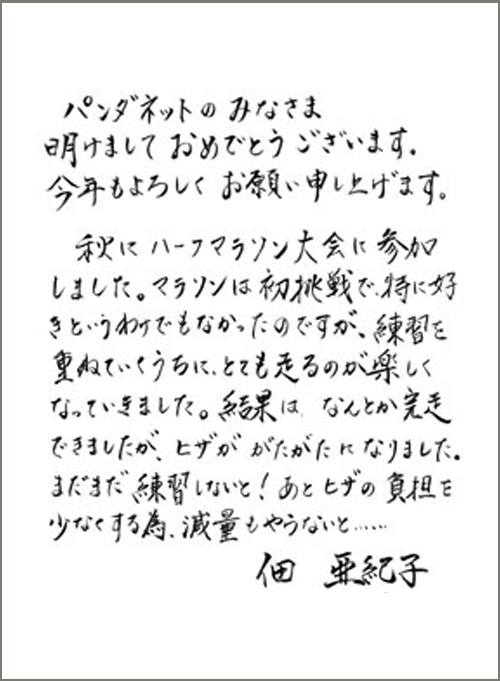 パンダネットのみなさま
明けましておめでとうございます.
今年もよろしくお願い申し上げます。
秋にハーフマラソン大会に参加
しました。マラソンは初挑戦で、特に好
きというわけでもなかったのですが、練習を
重ねていくうちに、とても走るのが楽しく
なっていきました。結果は、なんとか完走
できましたが、ヒザががたがたになりました。
まだまだ練習しないと!あとヒザの負担を
少なくする為、減量もやらないと……
佃 亜紀子